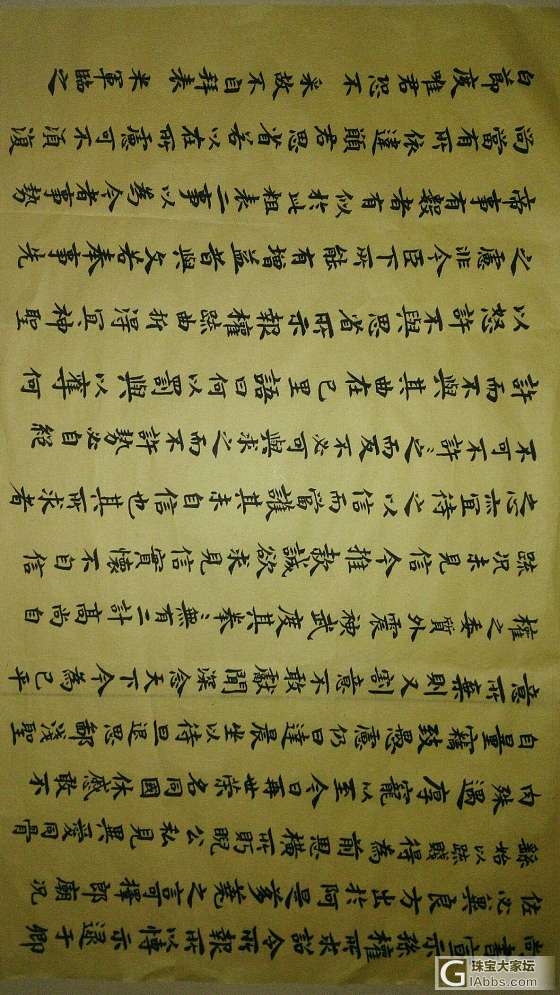 尚書宣示孫權所求詔令所報所以博示逯于卿
佐必冀良方出於阿是芻蕘之言可擇郎廟況
繇始以疏賤得為前恩橫所盱睨公私見異愛同骨
肉殊遇厚寵以至今日再世榮名同國休慼敢不
自量竊致愚慮仍日達晨坐以待旦退思鄙淺聖
意所棄則又割意不敢獻聞深念天下今為已平
權之委質外震神武度其拳〻無有二計高尚自
疏況未見信今推款誠欲求見信實懷不自信
之心亦宜待之以信而當護其未自信也其所求者
不可不許〻之而反不必可與求之而不許勢必自絕
許而不與其曲在己里語曰何以罰與以奪何
以怒許不與思省所示報權疏曲折得宜神聖
之慮非今臣下所能有增益昔與文若奉事先
帝事有數者有似於此粗表二事以為今者事勢
尚當有所依違願君思省若以在所慮可不須復
白節度唯君恐不采故不自拜表 米軍臨之
珠宝大家坛
GIAbbs.com